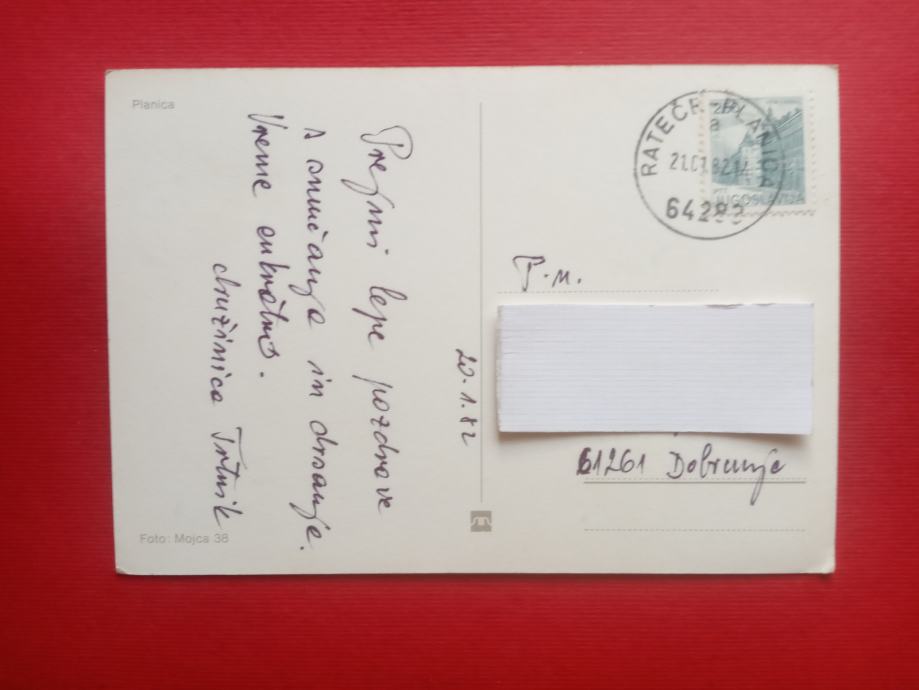 Planica
Prejmi lepe pozdrave
s smučanja in drsanja.
Vreme enkratno.
družinica Trtnik
20.1.82
Foto: Mojca 38
RATEČE-PLANICA
64283
JUGOSLAVIJA
T.n.
61261 Dobrunje